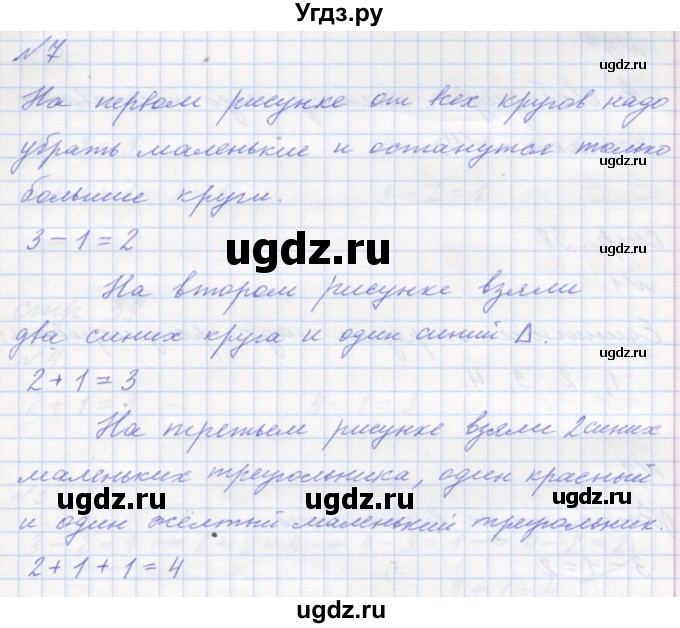 Угдз.ру
№7
На первом рисунке от всех кругов надо
убрать маленькие и останутся только
большие круги.
3 - 1 = 2
На втором рисунке взяли
два синих круга и один синий Δ.
2 + 1 = 3
На третьем рисунке взяли 2 синих
маленьких треугольника, один красный
и один жёлтый маленький треугольник.
2 + 1 + 1 = 4
ugdz.ru
ugdz.ru
ugdz.ru
ugdz.ru
ugdz.ru
ugdz.ru
ugdz.ru
ugdz.ru
ugdz.ru
ugdz.ru
ugdz.ru